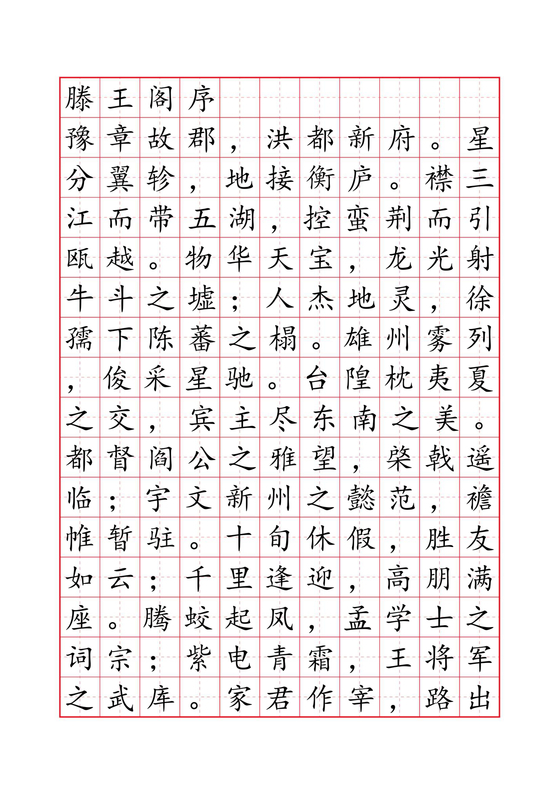 滕王阁序
豫章故郡，洪都新府。星
分翼轸，地接衡庐。襟三
江而带五湖，控蛮荆而引
瓯越。物华天宝，龙光射
牛斗之墟；人杰地灵，徐
孺下陈蕃之榻。雄州雾列
，俊采星驰。台隍枕夷夏
之交，宾主尽东南之美。
都督阎公之雅望，棨戟遥
临；宇文新州之懿范，襜
帷暂驻。十旬休假，胜友
如云；千里逢迎，高朋满
座。腾蛟起凤，孟学士之
词宗；紫电青霜，王将军
之武库。家君作宰，路出